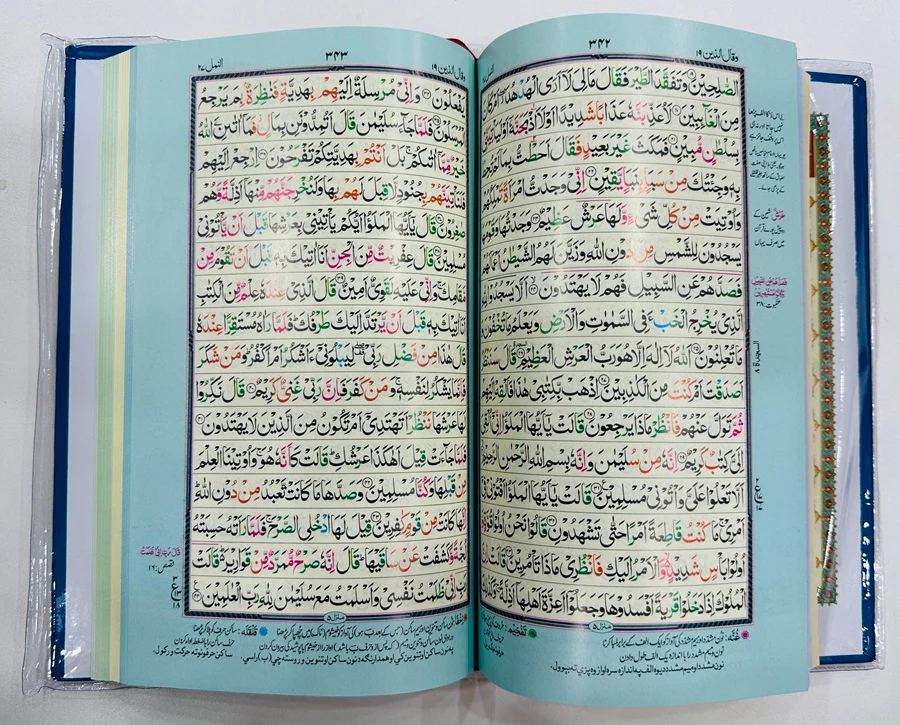 وقال الذین ١٩
٣٤٢
الصّٰلِحِیْنَ ۝ وَتَفَقَّدَ الطَّیْرَ فَقَالَ مَالِیَ لَاۤ اَرَی الْهُدْهُدَ اَمْ كَانَ
مِنَ الْغَآىِٕبِیْنَ ۝ لَاُعَذِّبَنَّهٗ عَذَابًا شَدِیْدًا اَوْ لَاۡاَذْبَحَنَّهٗۤ اَوْ لَیَاْتِیَنِّیْ
بِسُلْطٰنٍ مُّبِیْنٍ ۝ فَمَكَثَ غَیْرَ بَعِیْدٍ فَقَالَ اَحَطْتُّ بِمَا لَمْ تُحِطْ
بِهٖ وَجِئْتُكَ مِنْ سَبَاٍۭ بِنَبَاٍ یَّقِیْنٍ ۝ اِنِّیْ وَجَدْتُّ امْرَاَةً تَمْلِكُهُمْ
وَاُوْتِیَتْ مِنْ كُلِّ شَیْءٍ وَّلَهَا عَرْشٌ عَظِیْمٌ ۝ وَجَدْتُّهَا وَقَوْمَهَا
یَسْجُدُوْنَ لِلشَّمْسِ مِنْ دُوْنِ اللّٰهِ وَزَیَّنَ لَهُمُ الشَّیْطٰنُ اَعْمَالَهُمْ
فَصَدَّهُمْ عَنِ السَّبِیْلِ فَهُمْ لَا یَهْتَدُوْنَ ۝ اَلَّا یَسْجُدُوْا لِلّٰهِ
الَّذِیْ یُخْرِجُ الْخَبْءَ فِی السَّمٰوٰتِ وَالْاَرْضِ وَیَعْلَمُ مَا تُخْفُوْنَ وَ
مَا تُعْلِنُوْنَ ۝ اَللّٰهُ لَاۤ اِلٰهَ اِلَّا هُوَ رَبُّ الْعَرْشِ الْعَظِیْمِ ۝ قَالَ سَنَنْظُرُ
اَصَدَقْتَ اَمْ كُنْتَ مِنَ الْكٰذِبِیْنَ ۝ اِذْهَبْ بِّكِتٰبِیْ هٰذَا فَاَلْقِهْ اِلَیْهِمْ
ثُمَّ تَوَلَّ عَنْهُمْ فَانْظُرْ مَاذَا یَرْجِعُوْنَ ۝ قَالَتْ یٰۤاَیُّهَا الْمَلَؤُا اِنِّیْۤ اُلْقِیَ
اِلَیَّ كِتٰبٌ كَرِیْمٌ ۝ اِنَّهٗ مِنْ سُلَیْمٰنَ وَاِنَّهٗ بِسْمِ اللّٰهِ الرَّحْمٰنِ الرَّحِیْمِ ۝
اَلَّا تَعْلُوْا عَلَیَّ وَاْتُوْنِیْ مُسْلِمِیْنَ ۝ قَالَتْ یٰۤاَیُّهَا الْمَلَؤُا اَفْتُوْنِیْ فِیْۤ
اَمْرِیْ مَا كُنْتُ قَاطِعَةً اَمْرًا حَتّٰی تَشْهَدُوْنِ ۝ قَالُوْا نَحْنُ اُولُوْا قُوَّةٍ وَّ
اُولُوْا بَاْسٍ شَدِیْدٍ وَّالْاَمْرُ اِلَیْكِ فَانْظُرِیْ مَاذَا تَاْمُرِیْنَ ۝ قَالَتْ اِنَّ
الْمُلُوْكَ اِذَا دَخَلُوْا قَرْیَةً اَفْسَدُوْهَا وَجَعَلُوْۤا اَعِزَّةَ اَهْلِهَاۤ اَذِلَّةً وَكَذٰلِكَ
منزل ٥
السجدة ٨
وقال الذین ١٩
٣٤٣
النمل ٢٧
یَفْعَلُوْنَ ۝ وَاِنِّیْ مُرْسِلَةٌ اِلَیْهِمْ بِهَدِیَّةٍ فَنٰظِرَةٌۢ بِمَ یَرْجِعُ
الْمُرْسَلُوْنَ ۝ فَلَمَّا جَآءَ سُلَیْمٰنَ قَالَ اَتُمِدُّوْنَنِ بِمَالٍ فَمَاۤ اٰتٰىنِۦَ اللّٰهُ
خَیْرٌ مِّمَّاۤ اٰتٰىكُمْ بَلْ اَنْتُمْ بِهَدِیَّتِكُمْ تَفْرَحُوْنَ ۝ اِرْجِعْ اِلَیْهِمْ
فَلَنَاْتِیَنَّهُمْ بِجُنُوْدٍ لَّا قِبَلَ لَهُمْ بِهَا وَلَنُخْرِجَنَّهُمْ مِّنْهَاۤ اَذِلَّةً وَّهُمْ
صٰغِرُوْنَ ۝ قَالَ یٰۤاَیُّهَا الْمَلَؤُا اَیُّكُمْ یَاْتِیْنِیْ بِعَرْشِهَا قَبْلَ اَنْ یَّاْتُوْنِیْ
مُسْلِمِیْنَ ۝ قَالَ عِفْرِیْتٌ مِّنَ الْجِنِّ اَنَا اٰتِیْكَ بِهٖ قَبْلَ اَنْ تَقُوْمَ مِنْ
مَّقَامِكَ وَاِنِّیْ عَلَیْهِ لَقَوِیٌّ اَمِیْنٌ ۝ قَالَ الَّذِیْ عِنْدَهٗ عِلْمٌ مِّنَ الْكِتٰبِ
اَنَا اٰتِیْكَ بِهٖ قَبْلَ اَنْ یَّرْتَدَّ اِلَیْكَ طَرْفُكَ فَلَمَّا رَاٰهُ مُسْتَقِرًّا عِنْدَهٗ
قَالَ هٰذَا مِنْ فَضْلِ رَبِّیْ لِیَبْلُوَنِیْۤ ءَاَشْكُرُ اَمْ اَكْفُرُ وَمَنْ شَكَرَ
فَاِنَّمَا یَشْكُرُ لِنَفْسِهٖ وَمَنْ كَفَرَ فَاِنَّ رَبِّیْ غَنِیٌّ كَرِیْمٌ ۝ قَالَ نَكِّرُوْا
لَهَا عَرْشَهَا نَنْظُرْ اَتَهْتَدِیْۤ اَمْ تَكُوْنُ مِنَ الَّذِیْنَ لَا یَهْتَدُوْنَ ۝
فَلَمَّا جَآءَتْ قِیْلَ اَهٰكَذَا عَرْشُكِ قَالَتْ كَاَنَّهٗ هُوَ وَاُوْتِیْنَا الْعِلْمَ
مِنْ قَبْلِهَا وَكُنَّا مُسْلِمِیْنَ ۝ وَصَدَّهَا مَا كَانَتْ تَّعْبُدُ مِنْ دُوْنِ اللّٰهِ
اِنَّهَا كَانَتْ مِنْ قَوْمٍ كٰفِرِیْنَ ۝ قِیْلَ لَهَا ادْخُلِی الصَّرْحَ فَلَمَّا رَاَتْهُ حَسِبَتْهُ
لُجَّةً وَّكَشَفَتْ عَنْ سَاقَیْهَا قَالَ اِنَّهٗ صَرْحٌ مُّمَرَّدٌ مِّنْ قَوَارِیْرَ قَالَتْ
رَبِّ اِنِّیْ ظَلَمْتُ نَفْسِیْ وَاَسْلَمْتُ مَعَ سُلَیْمٰنَ لِلّٰهِ رَبِّ الْعٰلَمِیْنَ ۝
منزل ٥